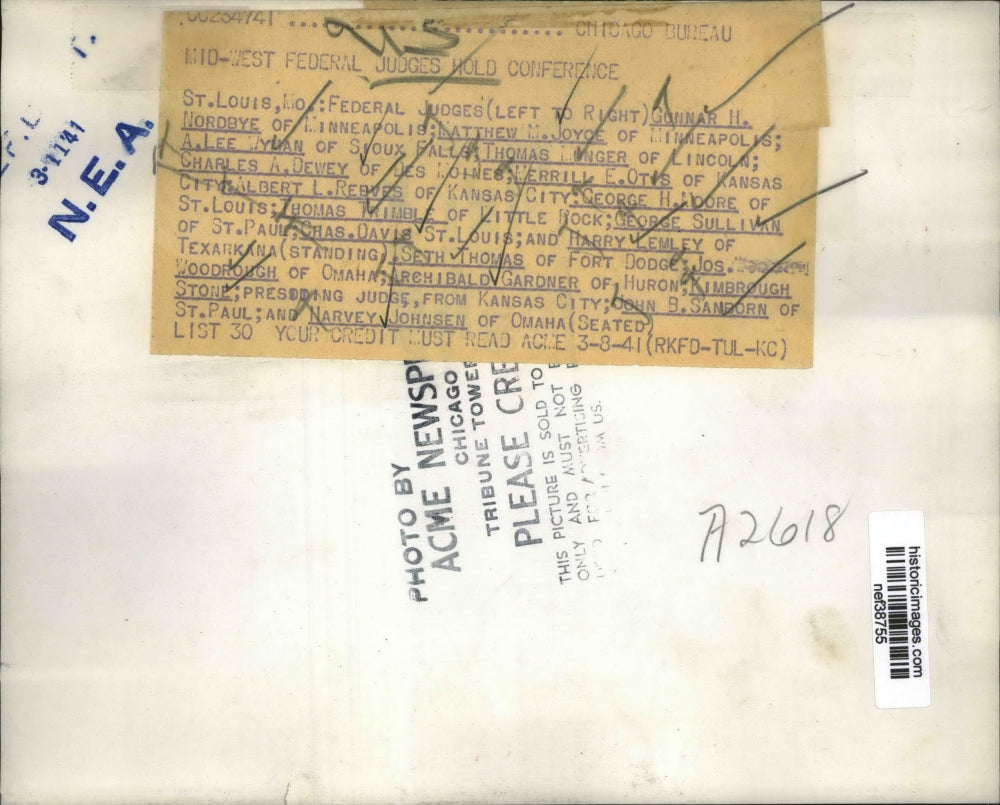 CC234741 ... CHICAGO BUREAU
MID-WEST FEDERAL JUDGES HOLD CONFERENCE
ST.LOUIS,MO.:FEDERAL JUDGES(LEFT TO RIGHT)GUNNAR H.
NORDBYE OF MINNEAPOLIS;MATTHEW M.JOYCE OF MINNEAPOLIS;
A.LEE WYMAN OF SIOUX FALLS;THOMAS MUNGER OF LINCOLN;
CHARLES A.DEWEY OF DES MOINES;MERRILL E.OTIS OF KANSAS
CITY;ALBERT L.REEVES OF KANSAS CITY;GEORGE H.MOORE OF
ST.LOUIS;THOMAS TRIMBLE OF LITTLE ROCK;GEORGE SULLIVAN
OF ST.PAUL;CHAS.DAVIS ST.LOUIS;AND HARRY LEMLEY OF
TEXARKANA(STANDING).SETH THOMAS OF FORT DODGE;JOS.
WOODROUGH OF OMAHA;ARCHIBALD GARDNER OF HURON;KIMBROUGH
STONE;PRESIDING JUDGE,FROM KANSAS CITY;JOHN B.SANBORN OF
ST.PAUL;AND HARVEY JOHNSEN OF OMAHA(SEATED)
LIST 30 YOUR CREDIT MUST READ ACME 3-8-41(RKFD-TUL-KC)
3-11 41
N.E.A.
PHOTO BY
ACME NEWSP
CHICAGO
TRIBUNE TOWE
PLEASE CRE
THIS PICTURE IS SOLD TO
ONLY AND MUST NOT
FOR ADVERTISING
US.
A2618
historicimages.com
nef38755